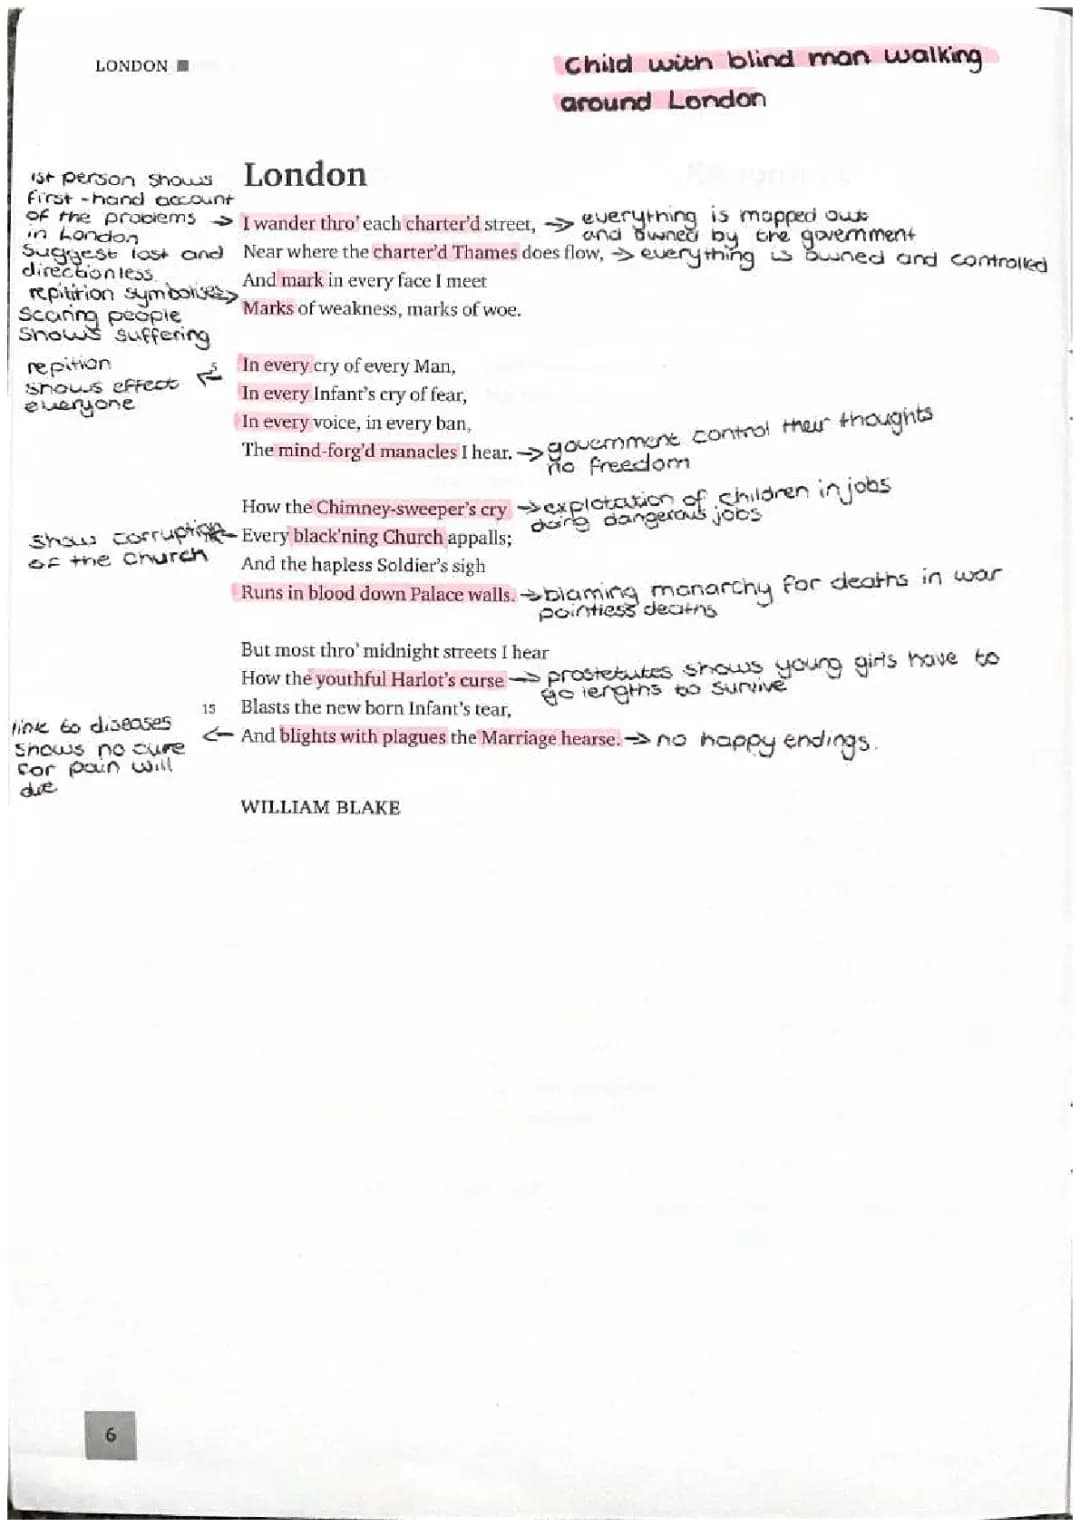 LONDON
Child with blind man walking
around London
London
1st person shows
first-hand account
of the problems →
in London
Suggest lost and
directionless.
repitition symbolises →
Scaring people
Shows suffering
I wander thro' each charter'd street, → everything is mapped out
and owned by the government
Near where the charter'd Thames does flow, → everything is owned and controlled
And mark in every face I meet
Marks of weakness, marks of woe.
repition
shows effect
everyone
5
In every cry of every Man,
In every Infant's cry of fear,
In every voice, in every ban,
The mind-forg'd manacles I hear. → government control their thoughts
no freedom
How the Chimney-sweeper's cry → explotation of children in jobs
doing dangerous jobs
show corruption
of the Church
Every black'ning Church appalls;
And the hapless Soldier's sigh
Runs in blood down Palace walls. → blaming monarchy for deaths in war
pointless deaths
But most thro' midnight streets I hear
How the youthful Harlot's curse → prostetutes shows young girls have to
go lengths to survive
15 Blasts the new born Infant's tear,
link to diseases
shows no cure
for pain will
die
← And blights with plagues the Marriage hearse. → no happy endings.
WILLIAM BLAKE
6